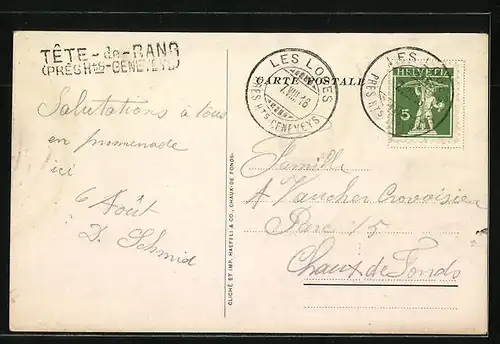 TÊTE-de-RANG
(PRÈS Hts-GENEVEYS)
CARTE POSTALE
LES LOGES
PRÈS Hts-GENEVEYS
LES
PRÈS Hts
HELVETIA
5
Salutations à tous
en promenade
ici
6 Août
D. Schmid
CLICHÉ ET IMP. HAEFELI & Co., CHAUX-DE-FONDS.
Famille
A Vaucher
Rue 15
Chaux de Fonds